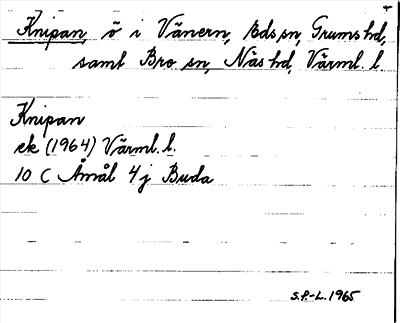 Knipan, ö i Vänern, Eds sn, Grums hd,
samt Bro sn, Näs hd, Värml. l.
Knipan
ek (1964) Värml. l.
10 C Åmål 4j Buda
S.P.-L. 1965